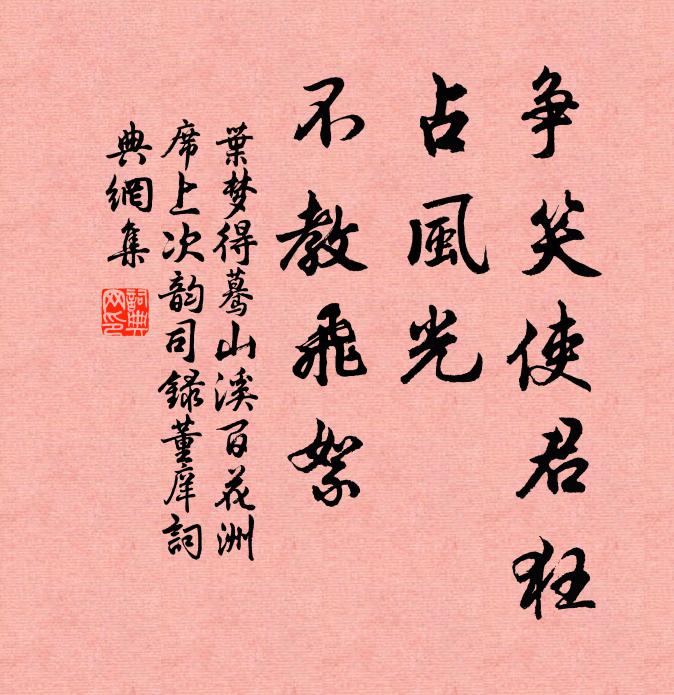 争笑使君狂
占風光
不教飛絮
葉梦得驀山溪百花洲
席上次韵司録董庠詞
典網集
詞典網印